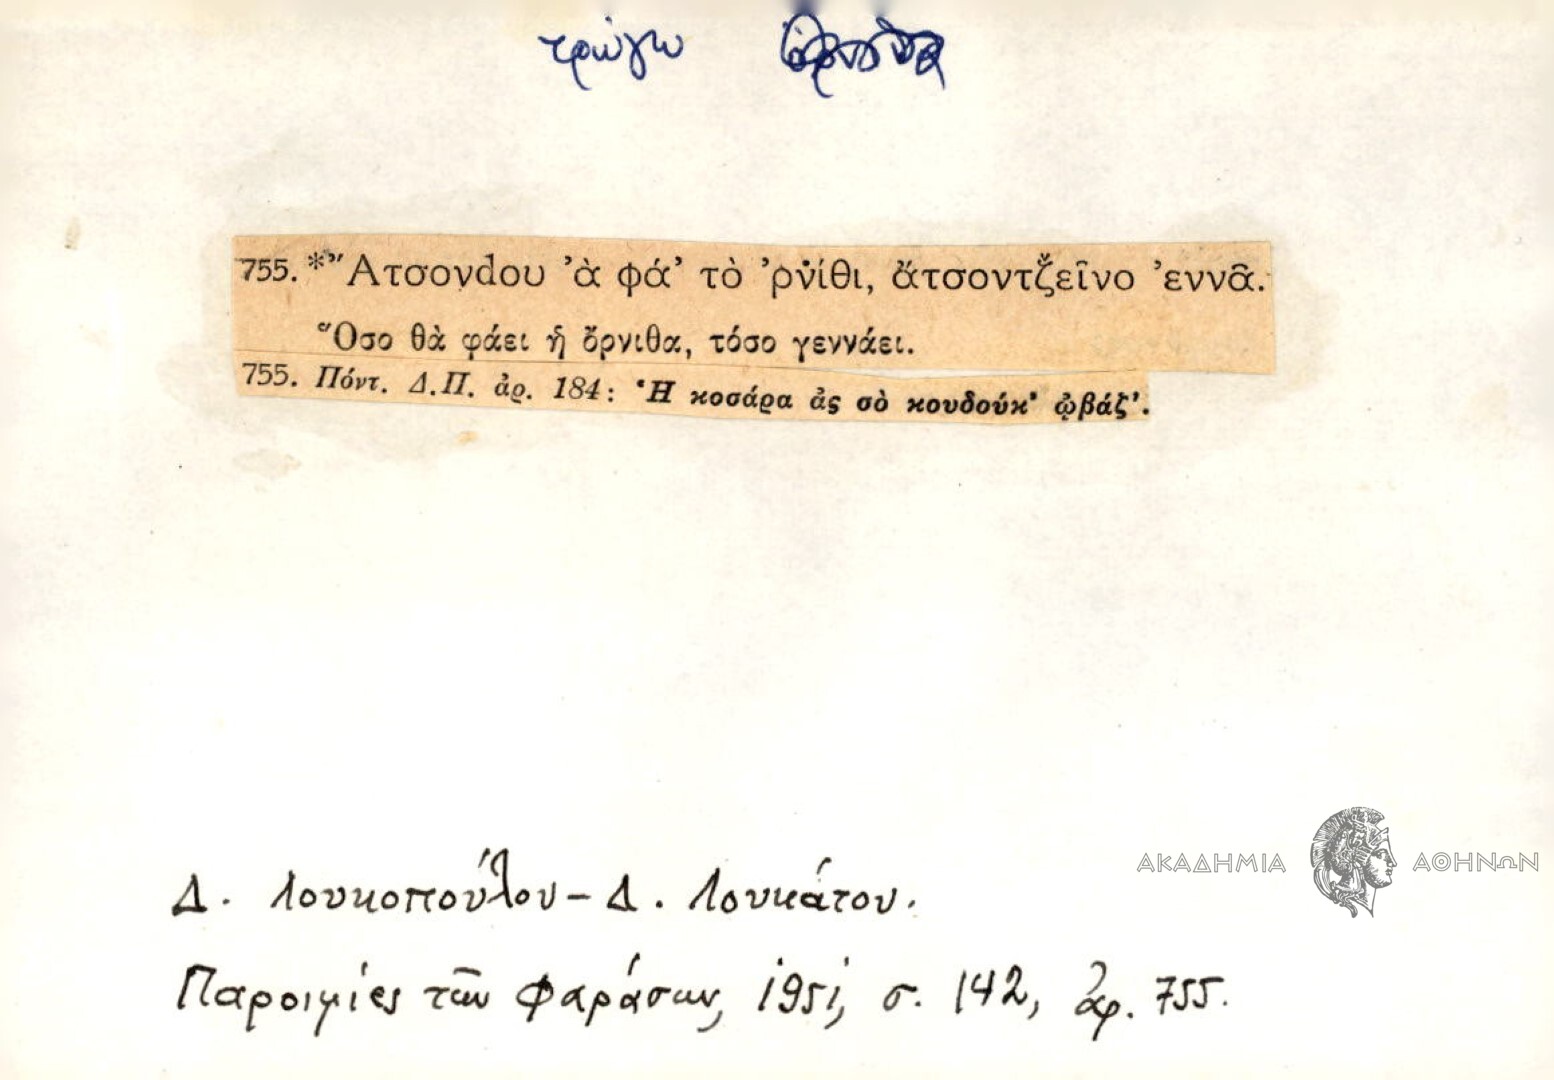 τρώγω
755. *Ἄτσονdου ’ὰ φά’ τὸ ’ρνίθι, ἄτσοντζ̌εῖνο ’εννᾶ.
Ὅσο θὰ φάει ἡ ὄρνιθα, τόσο γεννάει.
755. Πόντ. Δ.Π. ἀρ. 184: Ἡ κοσάρα ἀς σὸ κουδούκ’ ᾠβάζ’.
ΑΚΑΔΗΜΙΑ ΑΘΗΝΩΝ
Δ. Λουκοπούλου – Δ. Λουκάτου.
Παροιμίες τῶν Φαράσων, 1951, σ. 142, ἀρ. 755.